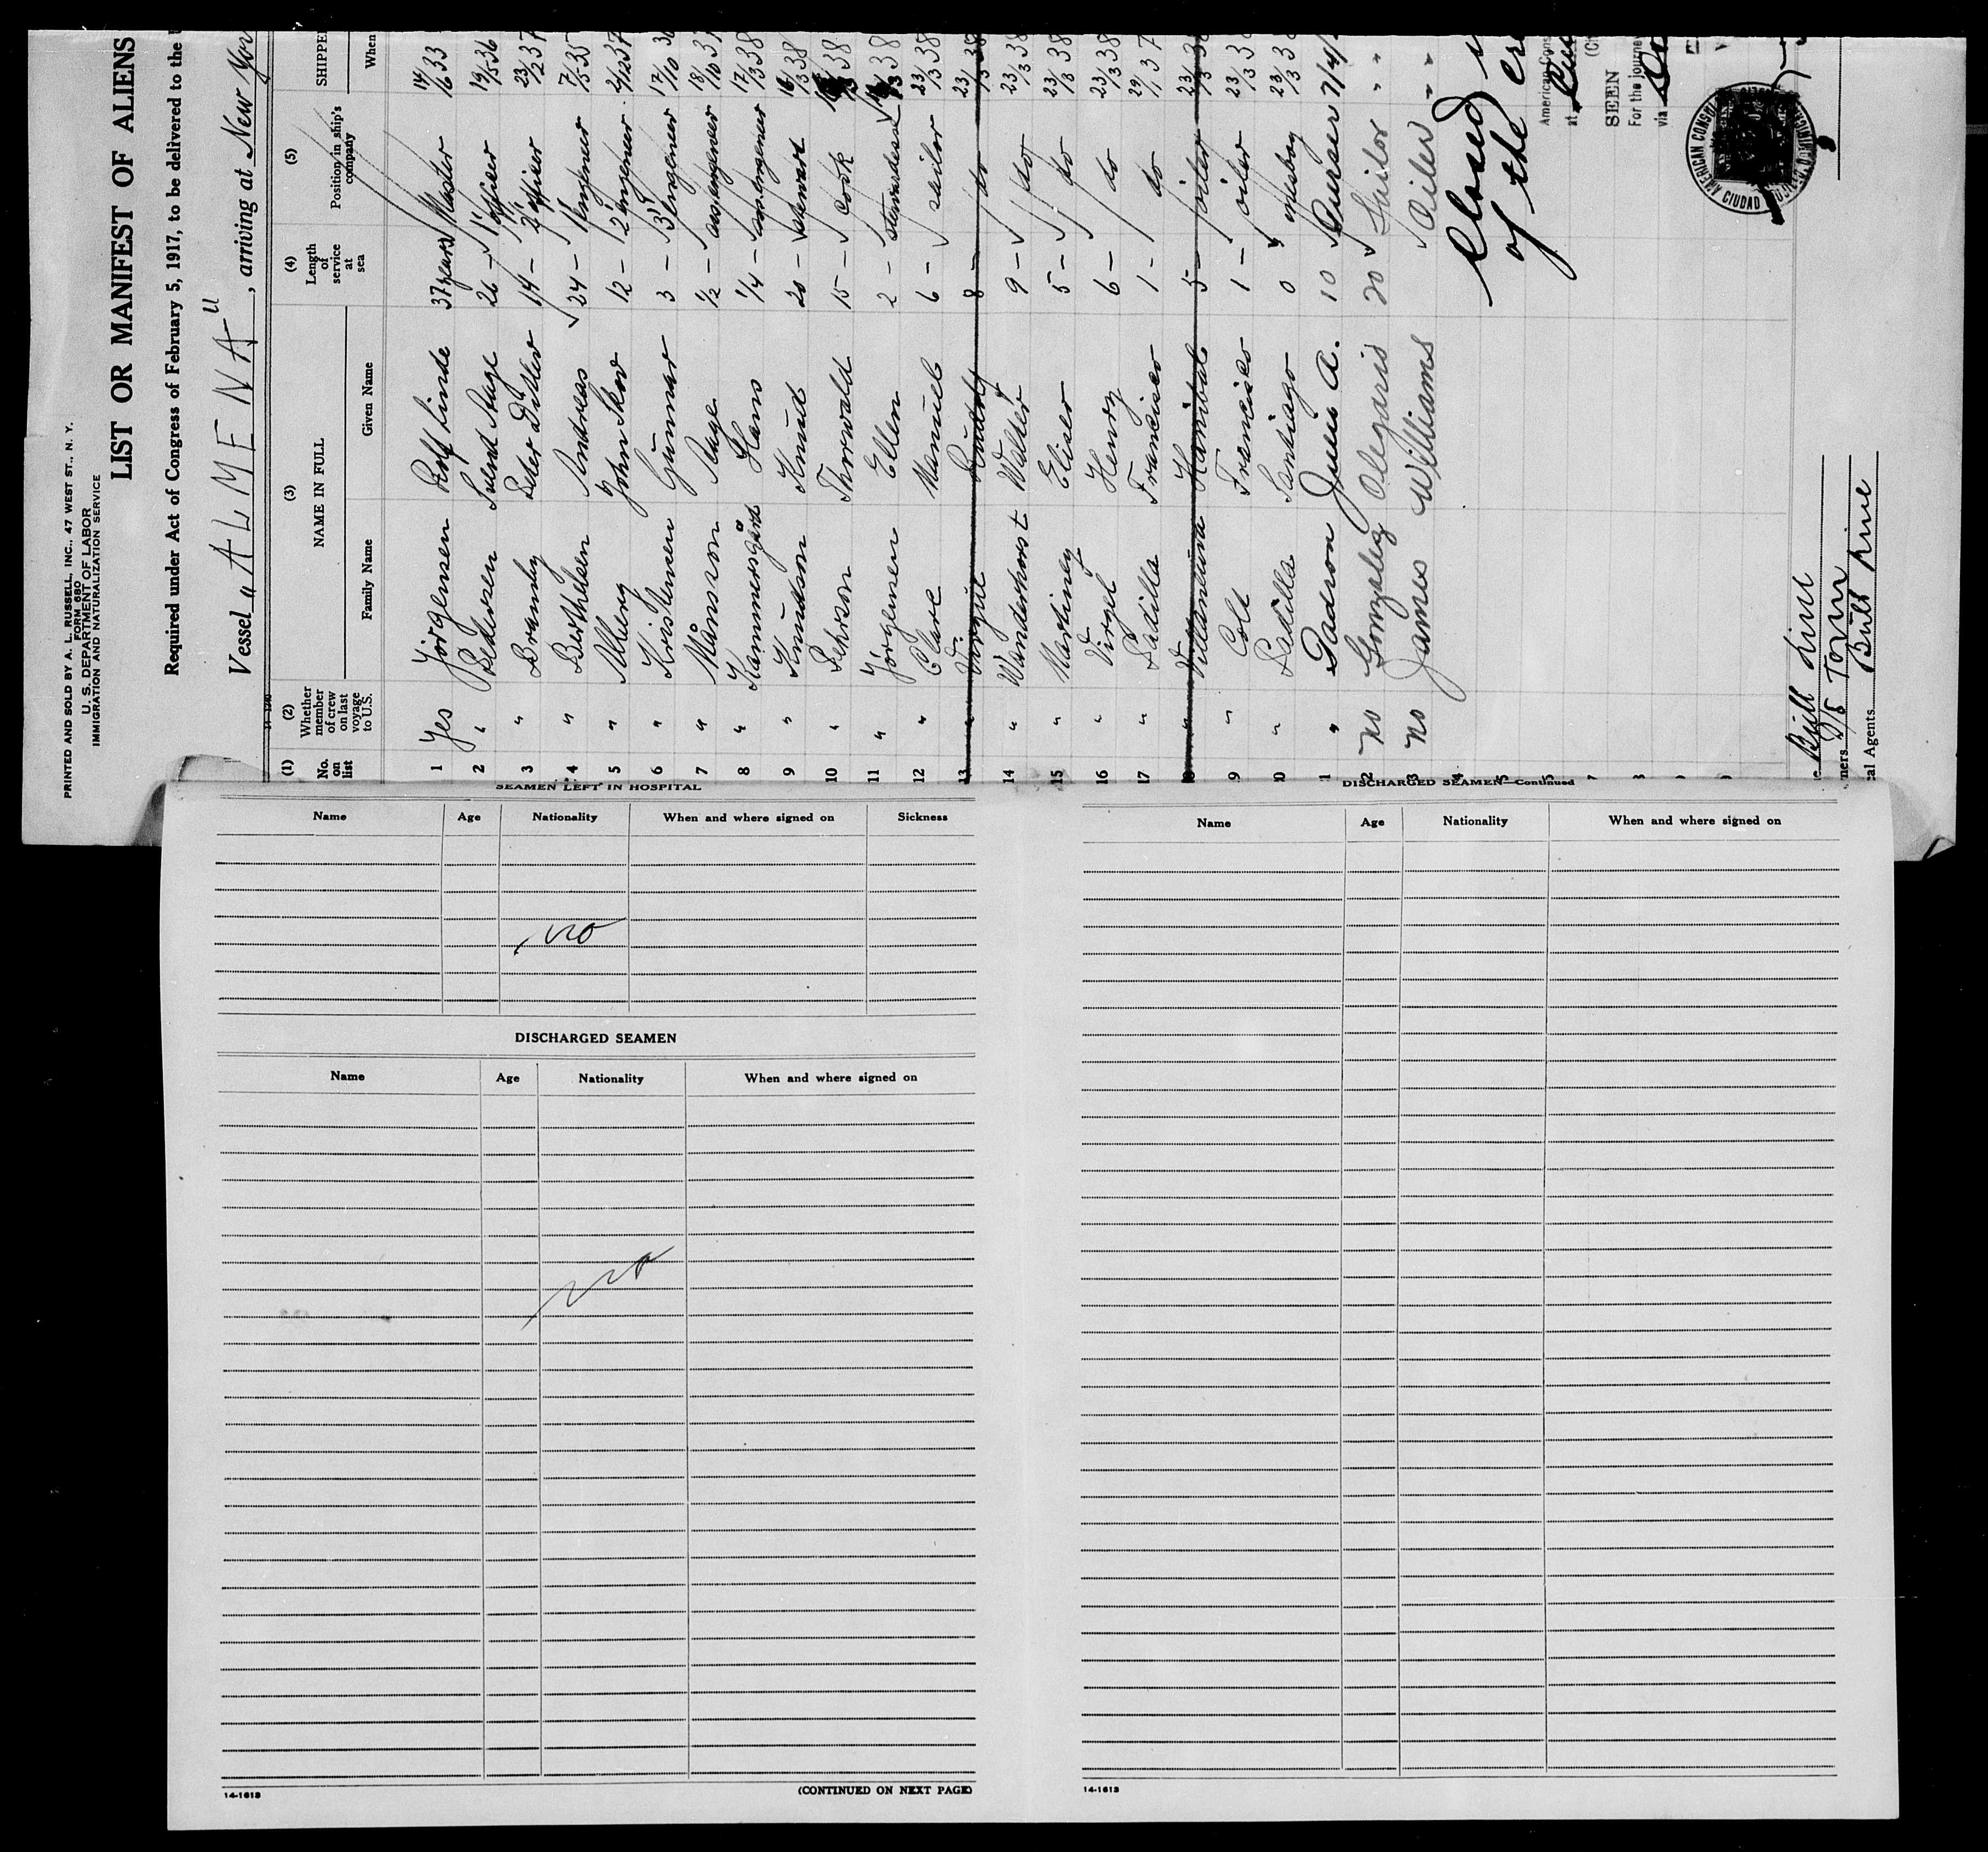 PRINTED AND SOLD BY A. L. RUSSELL, INC., 47 WEST ST., N. Y.
FORM 680
U. S. DEPARTMENT OF LABOR
IMMIGRATION AND NATURALIZATION SERVICE
LIST OR MANIFEST OF ALIENS
Required under Act of Congress of February 5, 1917, to be delivered to the
Vessel "ALMENA", arriving at New Yor
(1) (2) (3) (4) (5)
No. on list Whether member of crew on last voyage to U.S. NAME IN FULL Family Name Given Name Length of service at sea Position in ship's company SHIPPE When
1 Yes Jörgensen Rolf Linde 37 years Master 14/6 33
2 " Pedersen Svend Aage 26 - 1' officer 19/5 36
3 " Bramsby Peter Ditlev 14 - 2' officer 23/2 37
4 " Berthelsen Andreas 24 - 1' engeneer 7/5 35
5 " Alberg John Skov 12 - 2' engeneer 21/12 37
6 " Kristensen Gunnar 3 - 3' engeneer 17/10 36
7 " Månsson Aage 1/2 - ass. engeneer 18/10 37
8 " Kammersgård Hans 1/4 - ass. engeneer 17/3 38
9 " Knudson Knud 20 - steward 16/3 38
10 " Pehrson Thorwald 15 - cook 38
11 " Jörgensen Ellen 2 - stewardess 38
12 " Clarc Manuel 6 - sailor 23/3 38
13 " Virgut Rudolf 8 - do 23/3 38
14 " Wanderhorst Walter 9 - do 23/3 38
15 " Martinez Eliser 5 - do 23/3 38
16 " Virget Henry 6 - do 23/3 38
17 " Padilla Francisco 1 - do 29/1 37
18 " Villanueva Hanibal 5 - oiler 23/3 38
9 " Colt Francisco 1 - oiler 23/3 3
0 " Padilla Santiago 0 " messboy 23/3 3
1 " Padron Juan A. 10 Purser 7/4/
2 No Gonzalez Olegario 20 Sailor " "
3 No James Williams Oiler " "
4
5
6
7
8
Closed
of the cre
American Cons
at
SEEN
For the journe
via
AMERICAN CONSUL
CIUDAD
Bull Line
ners
al Agents Bull Line
SEAMEN LEFT IN HOSPITAL
Name Age Nationality When and where signed on Sickness
no
DISCHARGED SEAMEN
Name Age Nationality When and where signed on
no
14-1613
(CONTINUED ON NEXT PAGE)
DISCHARGED SEAMEN—Continued
Name Age Nationality When and where signed on
14-1613